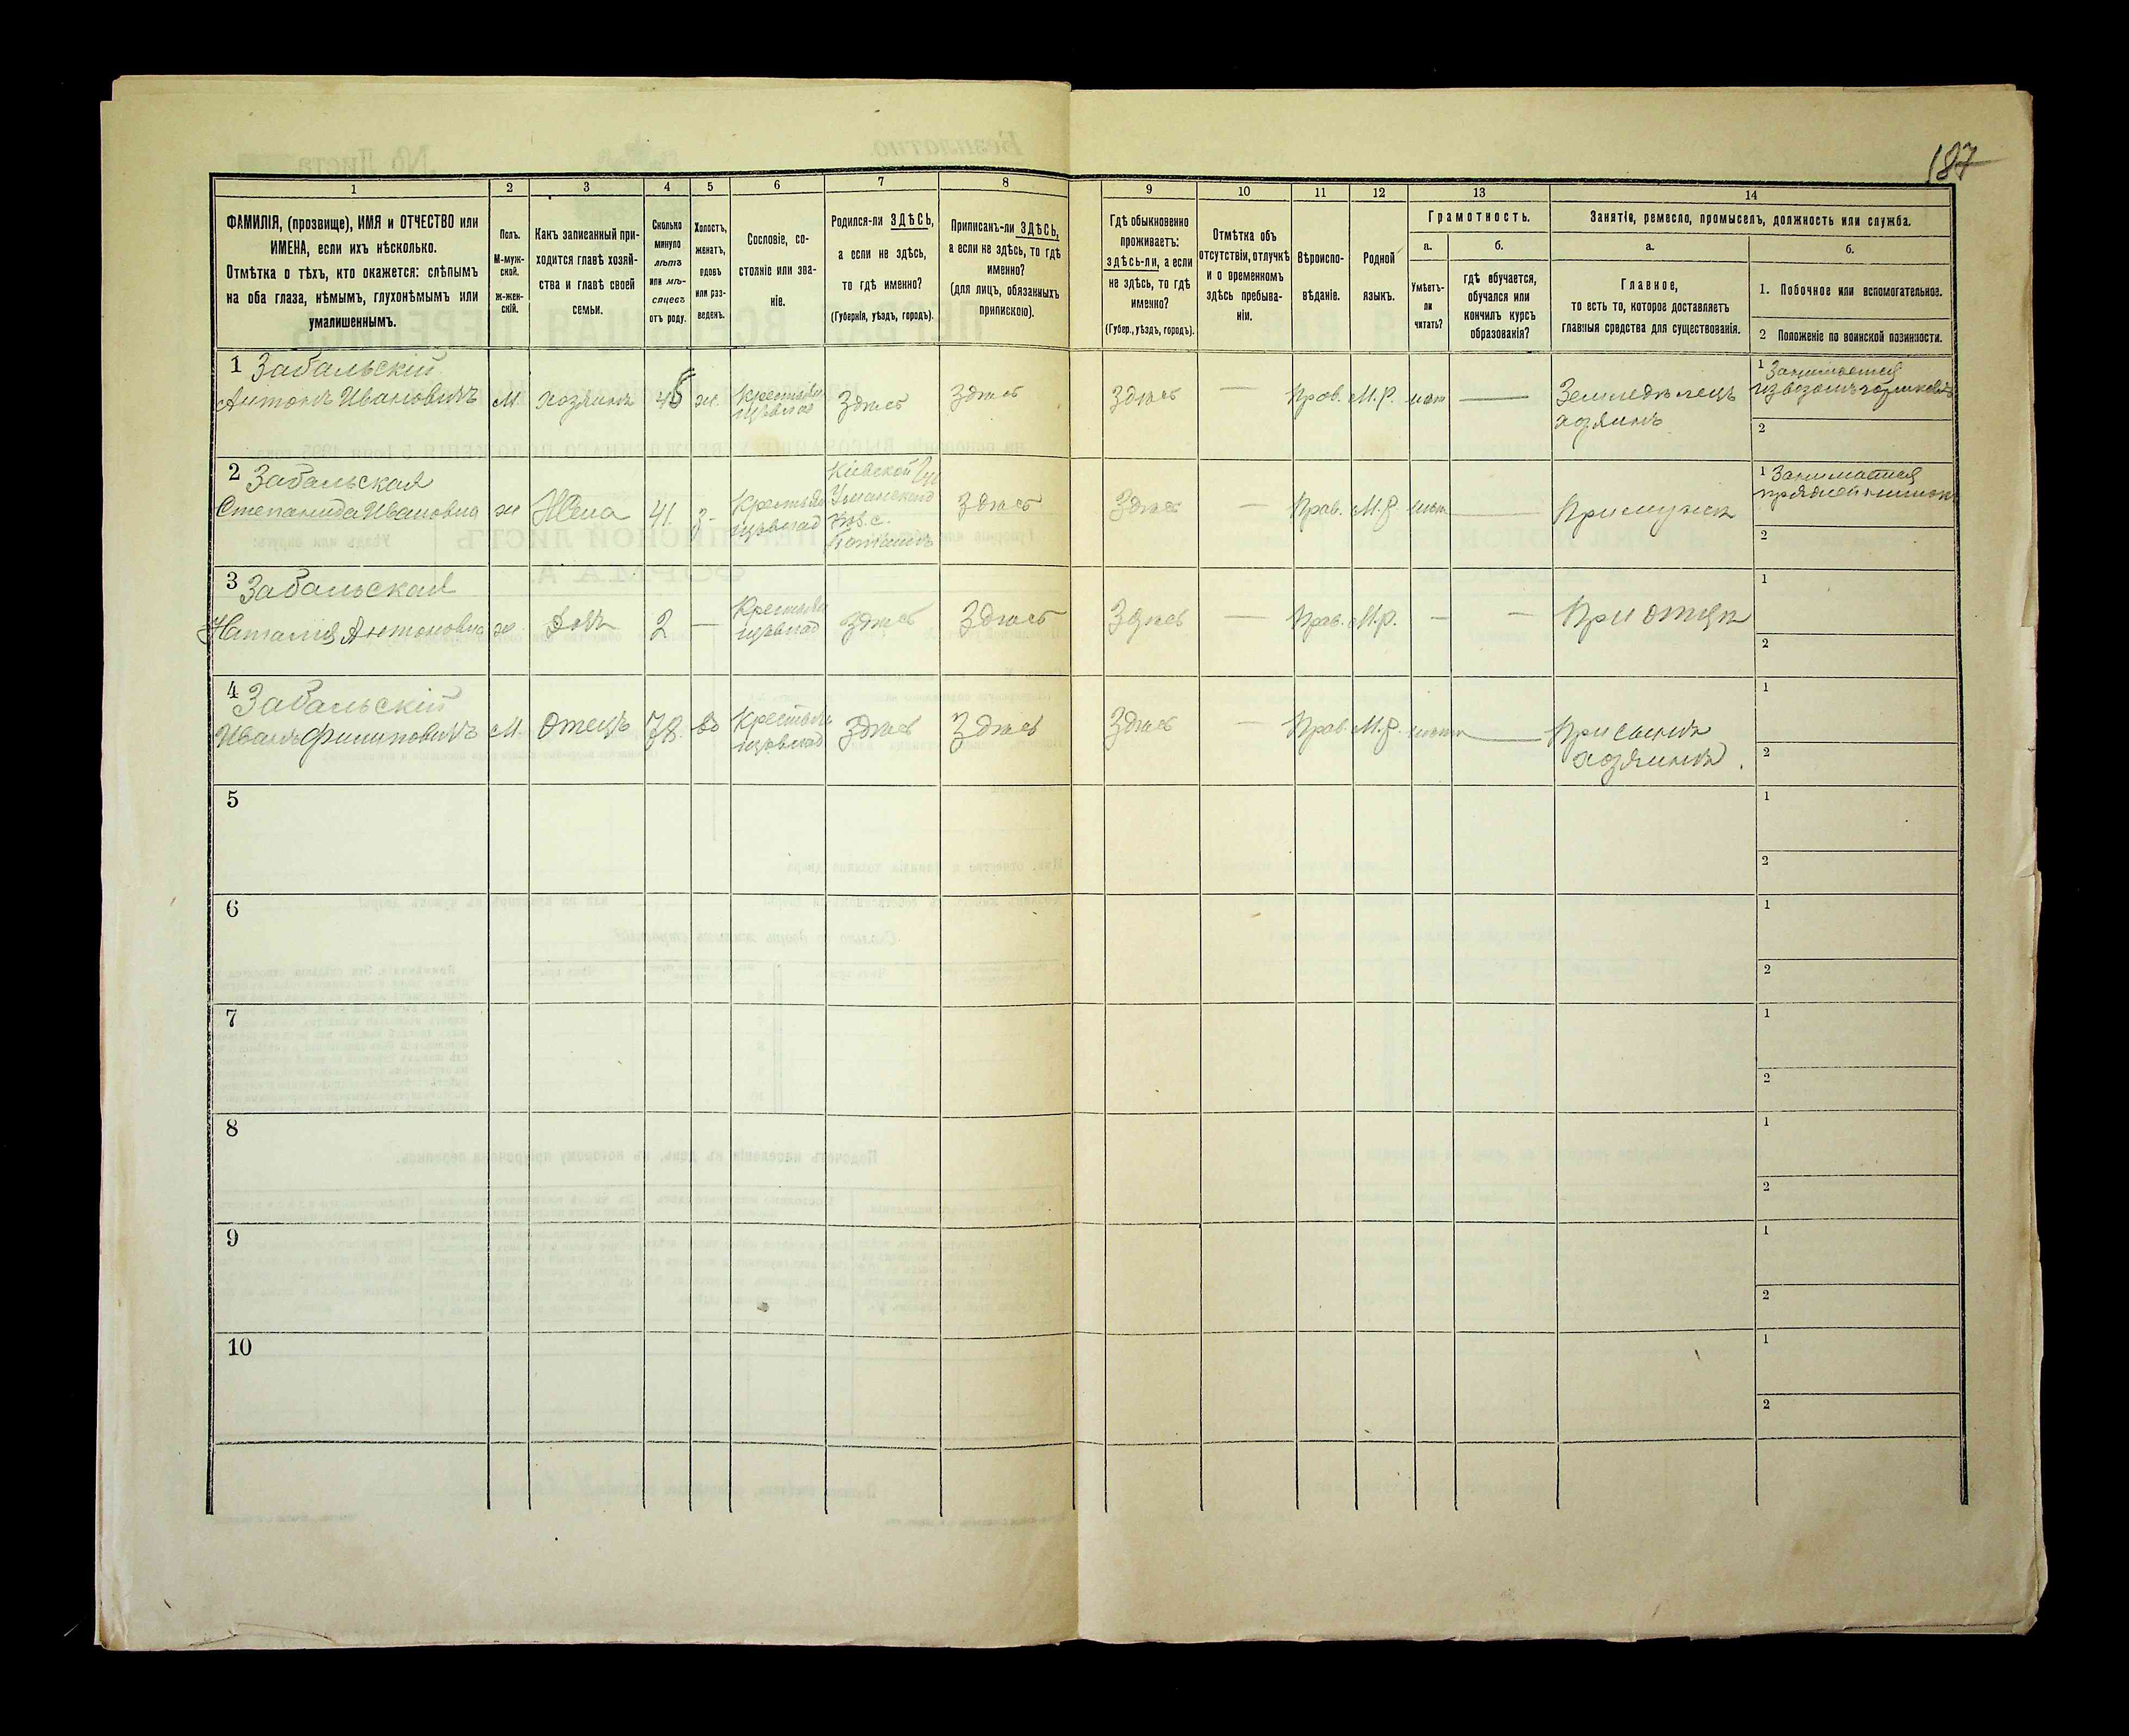 187
1 2 3 4 5 6 7 8 9 10 11 12 13 14
ФАМИЛІЯ, (прозвище), ИМЯ и ОТЧЕСТВО или
ИМЕНА, если ихъ нѣсколько.
Отмѣтка о тѣхъ, кто окажется: слѣпымъ
на оба глаза, нѣмымъ, глухонѣмымъ или
умалишеннымъ.
Полъ.
М-муж-
ской.
ж-жен-
скій.
Какъ записанный при-
ходится главѣ хозяй-
ства и главѣ своей
семьи.
Сколько
минуло
лѣтъ
или мѣ-
сяцевъ
отъ роду.
Холостъ,
женатъ,
вдовъ
или раз-
веденъ.
Сословіе, со-
стояніе или зва-
ніе.
Родился-ли ЗДѢСЬ,
а если не здѣсь,
то гдѣ именно?
(Губернія, уѣздъ, городъ).
Приписанъ-ли ЗДѢСЬ,
а если не здѣсь, то гдѣ
именно?
(для лицъ, обязанныхъ
припискою).
Гдѣ обыкновенно
проживаетъ:
здѣсь-ли, а если
не здѣсь, то гдѣ
именно?
(Губер., уѣздъ, городъ).
Отмѣтка объ
отсутствіи, отлучкѣ
и о временномъ
здѣсь пребыва-
ніи.
Вѣроиспо-
вѣданіе.
Родной
языкъ.
Грамотность.
а.
Умѣетъ-
ли
читать?
б.
гдѣ обучается,
обучался или
кончилъ курсъ
образованія?
Занятіе, ремесло, промыселъ, должность или служба.
а.
Главное,
то есть то, которое доставляетъ
главныя средства для существованія.
б.
1. Побочное или вспомогательное.
2 Положеніе по воинской повинности.
1 Забальскій
Антонъ Ивановичъ
м.
хозяинъ
ж.
Здѣсь
Здѣсь
Здѣсь
—
Прав.
М.р.
нѣт
—
Земледѣлецъ
хозяинъ
1 Занимается
2
2 Забальская
Степанида Ивановна
ж
Жена
41
з.
Кіевской
Уманскаго
Здѣсь
Здѣсь
—
Прав.
М.р.
нѣт
При мужѣ
1 Занимается
2
3 Забальская
Наталія Антоновна
ж.
Дочь
2
—
Здѣсь
Здѣсь
Здѣсь
—
Прав.
М.р.
—
—
При отцѣ
1
2
4 Забальскій
Иванъ Филиповичъ
м.
Отецъ
78.
вд
Здѣсь
Здѣсь
Здѣсь
—
Прав.
М.р.
нѣт
При сынѣ
хозяинѣ.
1
2
5
1
2
6
1
2
7
1
2
8
1
2
9
1
2
10
1
2